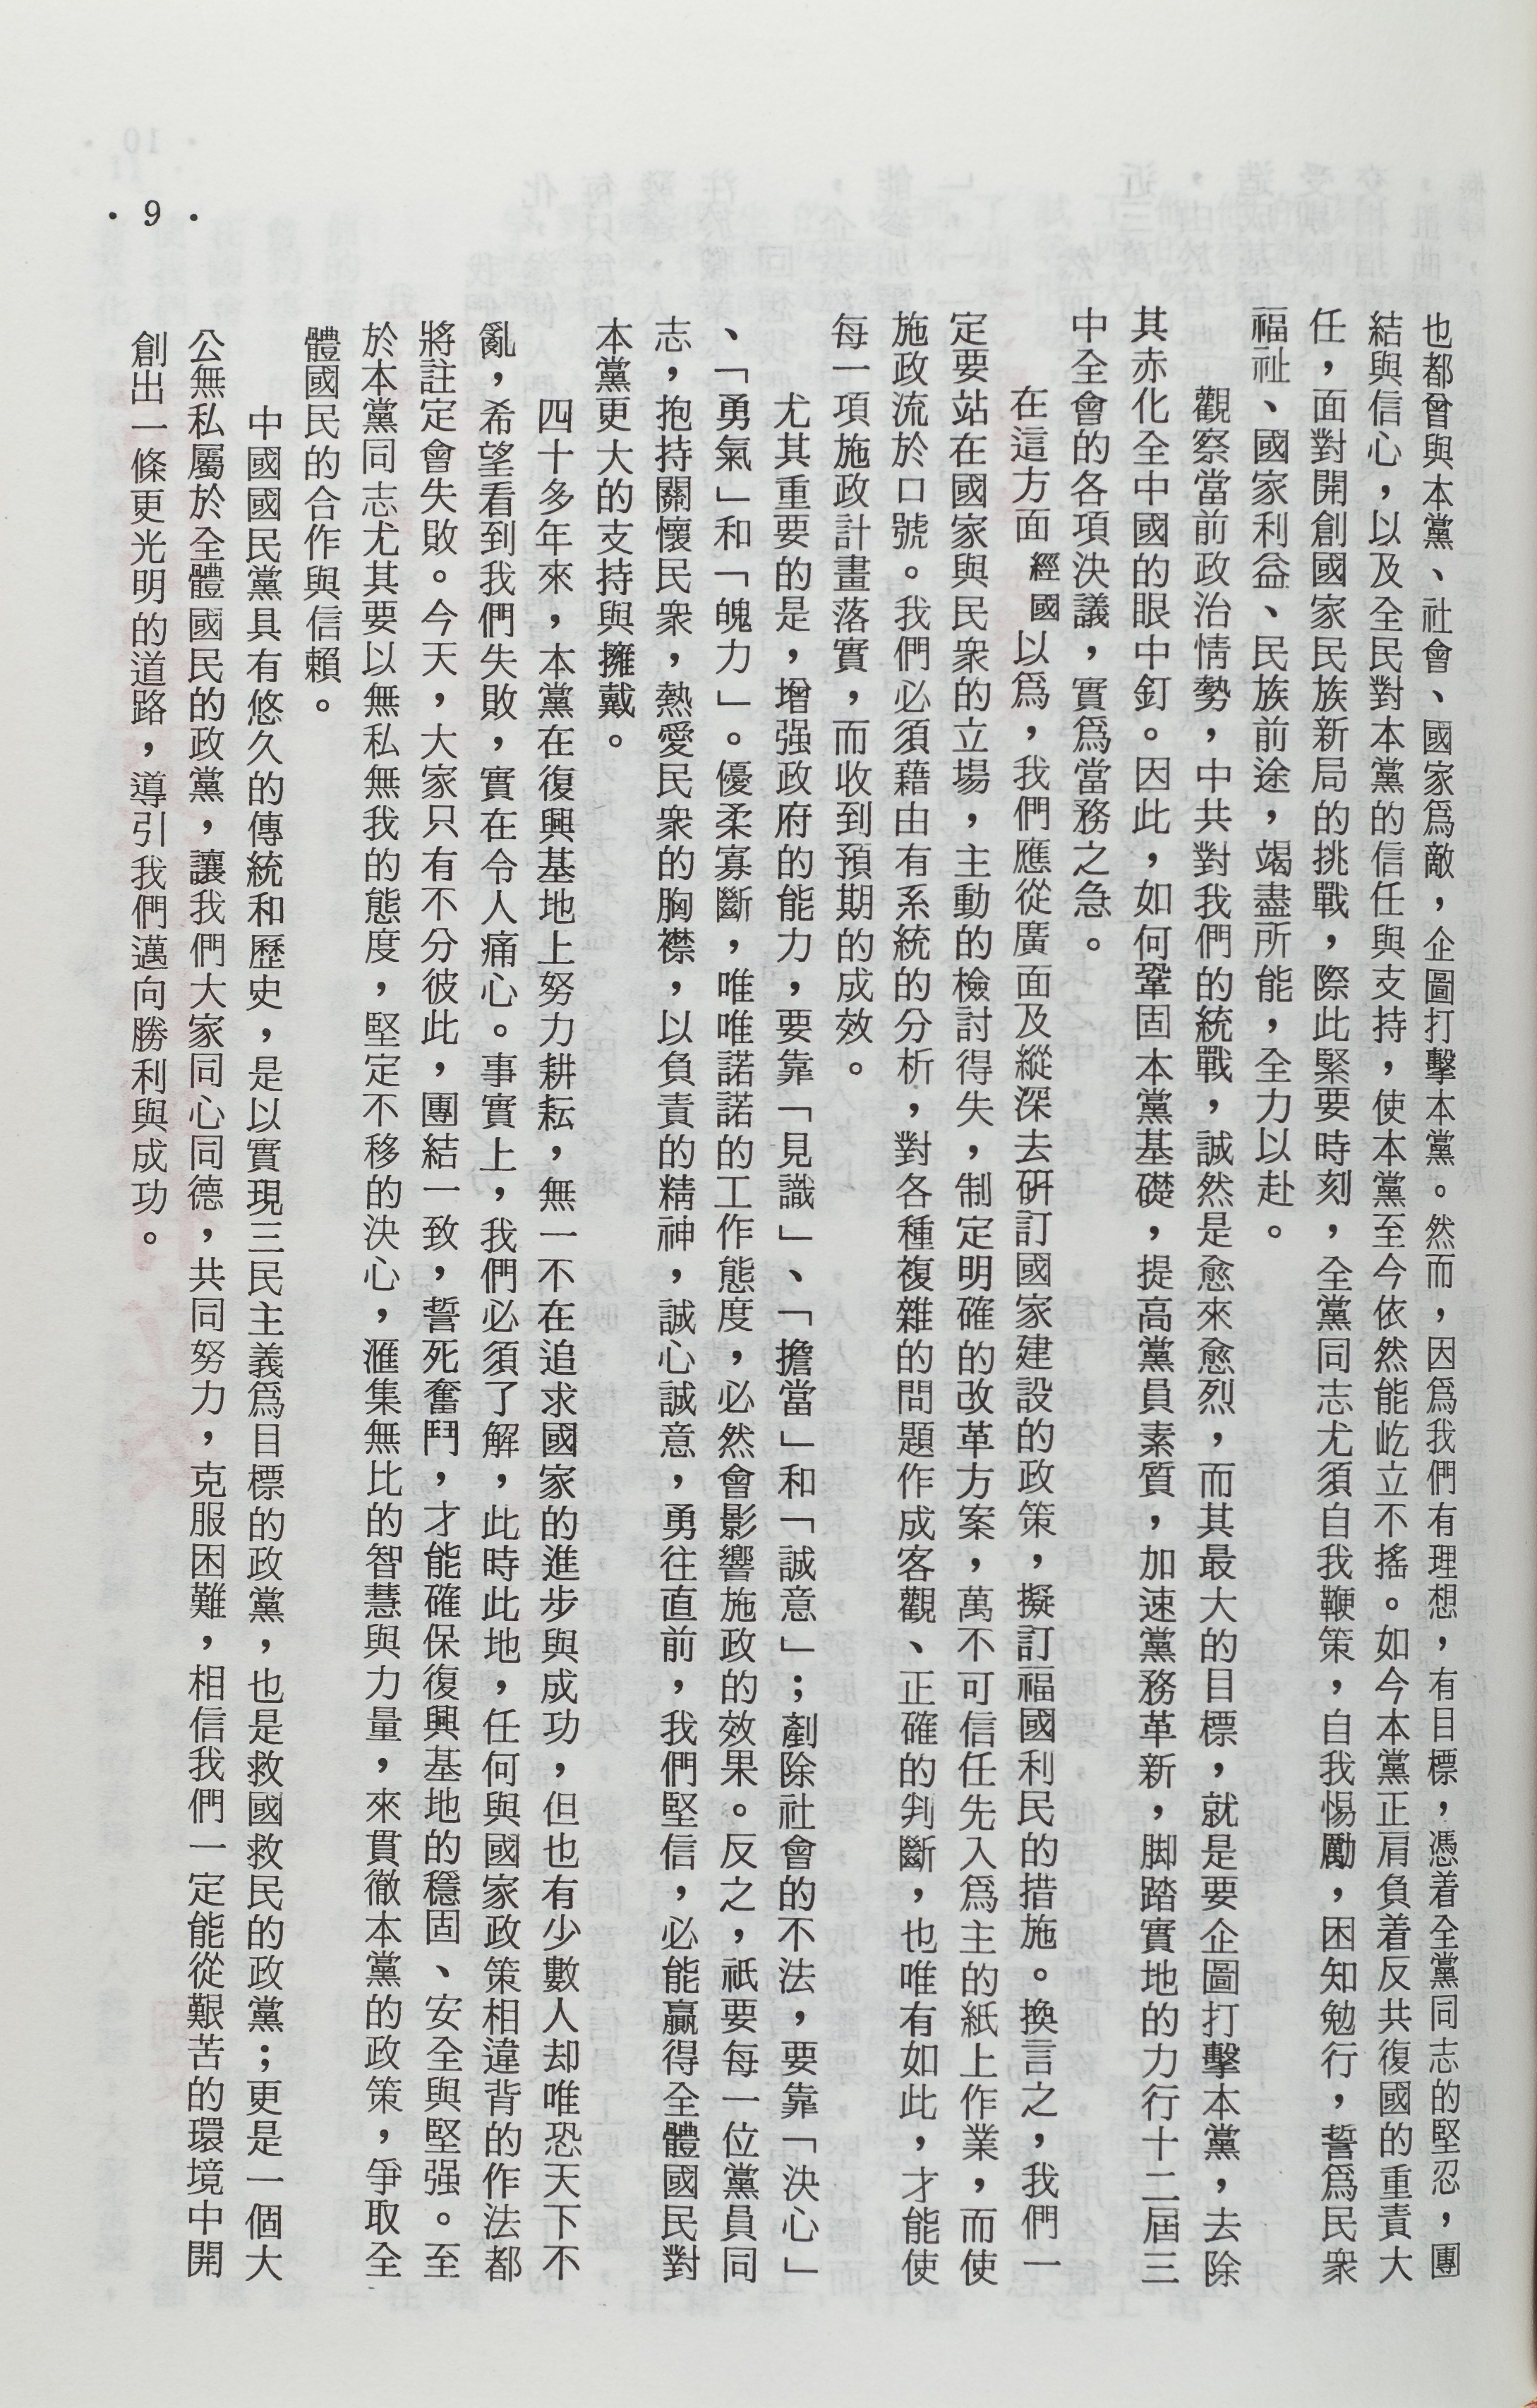 也都曾與本黨、社會、國家爲敵，企圖打擊本黨。然而，因爲我們有理想，有目標，憑着全黨同志的堅忍，團
結與信心，以及全民對本黨的信任與支持，使本黨至今依然能屹立不搖。如今本黨正肩負着反共復國的重責大
任，面對開創國家民族新局的挑戰，際此緊要時刻，全黨同志尤須自我鞭策，自我惕勵，困知勉行，誓爲民衆
福祉、國家利益、民族前途，竭盡所能，全力以赴。
觀察當前政治情勢，中共對我們的統戰，誠然是愈來愈烈，而其最大的目標，就是要企圖打擊本黨，去除
其赤化全中國的眼中釘。因此，如何鞏固本黨基礎，提高黨員素質，加速黨務革新，脚踏實地的力行十二屆三
中全會的各項決議，實爲當務之急。
在這方面 經國以爲，我們應從廣面及縱深去研訂國家建設的政策，擬訂福國利民的措施。換言之，我們一
定要站在國家與民衆的立場，主動的檢討得失，制定明確的改革方案，萬不可信任先入爲主的紙上作業，而使
施政流於口號。我們必須藉由有系統的分析，對各種複雜的問題作成客觀、正確的判斷，也唯有如此，才能使
每一項施政計畫落實，而收到預期的成效。
尤其重要的是，增强政府的能力，要靠「見識」、「擔當」和「誠意」；剷除社會的不法，要靠「決心」
、「勇氣」和「魄力」。優柔寡斷，唯唯諾諾的工作態度，必然會影響施政的效果。反之，祇要每一位黨員同
志，抱持關懷民衆，熱愛民衆的胸襟，以負責的精神，誠心誠意，勇往直前，我們堅信，必能贏得全體國民對
本黨更大的支持與擁戴。
四十多年來，本黨在復興基地上努力耕耘，無一不在追求國家的進步與成功，但也有少數人却唯恐天下不
亂，希望看到我們失敗，實在令人痛心。事實上，我們必須了解，此時此地，任何與國家政策相違背的作法都
將註定會失敗。今天，大家只有不分彼此，團結一致，誓死奮鬥，才能確保復興基地的穩固、安全與堅强。至
於本黨同志尤其要以無私無我的態度，堅定不移的決心，滙集無比的智慧與力量，來貫徹本黨的政策，爭取全
體國民的合作與信賴。
中國國民黨具有悠久的傳統和歷史，是以實現三民主義爲目標的政黨，也是救國救民的政黨；更是一個大
公無私屬於全體國民的政黨，讓我們大家同心同德，共同努力，克服困難，相信我們一定能從艱苦的環境中開
創出一條更光明的道路，導引我們邁向勝利與成功。
・9・